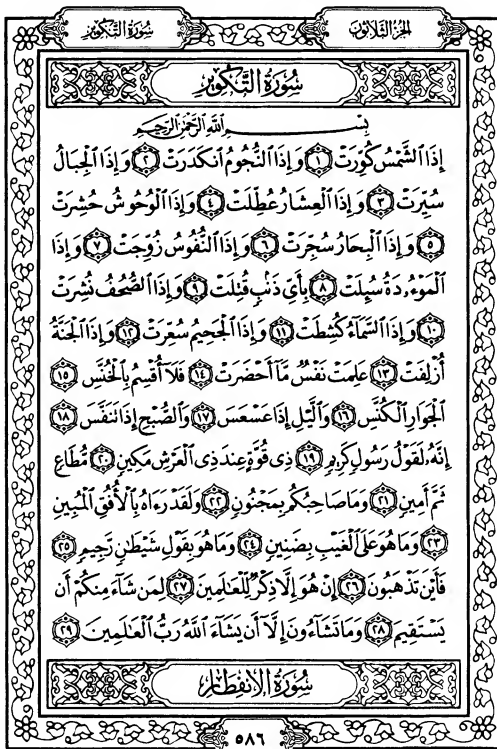 الجزء الثلاثون
سورة التكوير
سُورَةُ التَّكْوِيرِ
بِسْمِ اللَّهِ الرَّحْمَٰنِ الرَّحِيمِ
إِذَا ٱلشَّمْسُ كُوِّرَتْ ١ وَإِذَا ٱلنُّجُومُ ٱنكَدَرَتْ ٢ وَإِذَا ٱلْجِبَالُ
سُيِّرَتْ ٣ وَإِذَا ٱلْعِشَارُ عُطِّلَتْ ٤ وَإِذَا ٱلْوُحُوشُ حُشِرَتْ
٥ وَإِذَا ٱلْبِحَارُ سُجِّرَتْ ٦ وَإِذَا ٱلنُّفُوسُ زُوِّجَتْ ٧ وَإِذَا
ٱلْمَوْءُۥدَةُ سُئِلَتْ ٨ بِأَىِّ ذَنۢبٍ قُتِلَتْ ٩ وَإِذَا ٱلصُّحُفُ نُشِرَتْ
١٠ وَإِذَا ٱلسَّمَآءُ كُشِطَتْ ١١ وَإِذَا ٱلْجَحِيمُ سُعِّرَتْ ١٢ وَإِذَا ٱلْجَنَّةُ
أُزْلِفَتْ ١٣ عَلِمَتْ نَفْسٌ مَّآ أَحْضَرَتْ ١٤ فَلَآ أُقْسِمُ بِٱلْخُنَّسِ ١٥
ٱلْجَوَارِ ٱلْكُنَّسِ ١٦ وَٱلَّيْلِ إِذَا عَسْعَسَ ١٧ وَٱلصُّبْحِ إِذَا تَنَفَّسَ ١٨
إِنَّهُۥ لَقَوْلُ رَسُولٍ كَرِيمٍ ١٩ ذِى قُوَّةٍ عِندَ ذِى ٱلْعَرْشِ مَكِينٍ ٢٠ مُّطَاعٍ
ثَمَّ أَمِينٍ ٢١ وَمَا صَاحِبُكُم بِمَجْنُونٍ ٢٢ وَلَقَدْ رَءَاهُ بِٱلْأُفُقِ ٱلْمُبِينِ
٢٣ وَمَا هُوَ عَلَى ٱلْغَيْبِ بِضَنِينٍ ٢٤ وَمَا هُوَ بِقَوْلِ شَيْطَٰنٍ رَّجِيمٍ ٢٥
فَأَيْنَ تَذْهَبُونَ ٢٦ إِنْ هُوَ إِلَّا ذِكْرٌ لِّلْعَٰلَمِينَ ٢٧ لِمَن شَآءَ مِنكُمْ أَن
يَسْتَقِيمَ ٢٨ وَمَا تَشَآءُونَ إِلَّآ أَن يَشَآءَ ٱللَّهُ رَبُّ ٱلْعَٰلَمِينَ ٢٩
سُورَةُ الِانفِطَارِ
٥٨٦